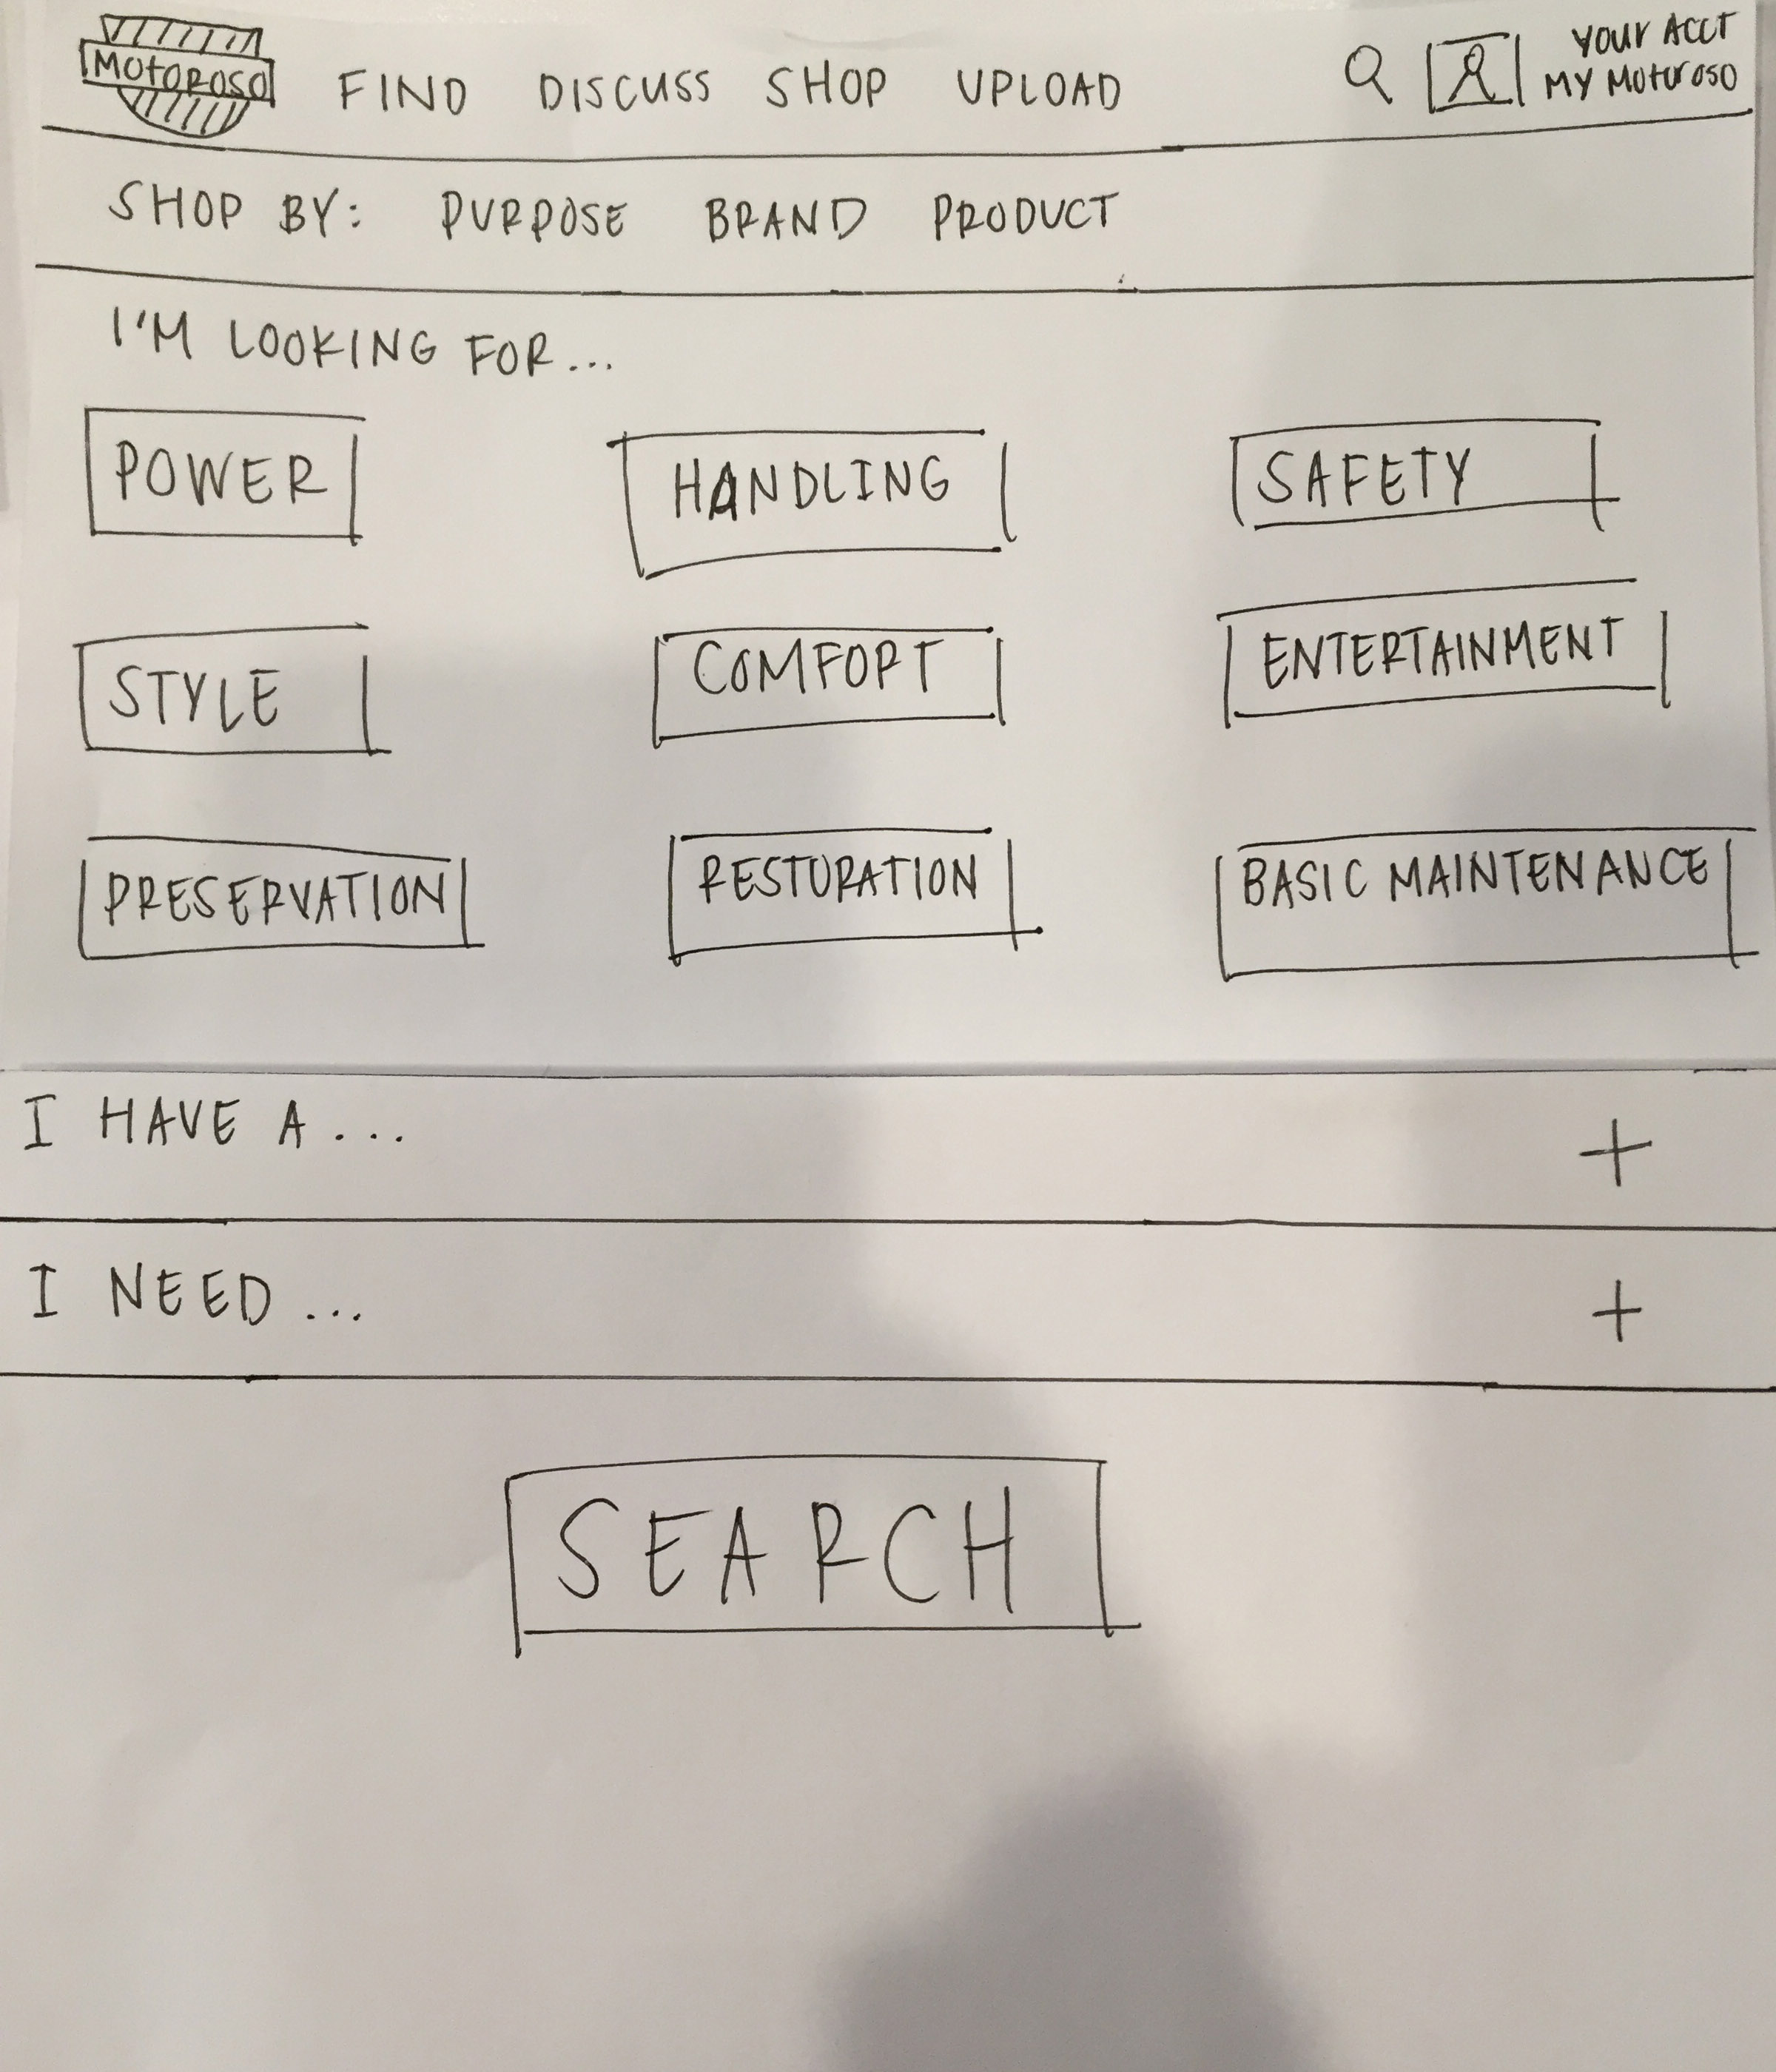 MOTOROSO FIND DISCUSS SHOP UPLOAD
YOUR ACCT
MY MOTOROSO
SHOP BY: PURPOSE BRAND PRODUCT
I'M LOOKING FOR...
POWER HANDLING SAFETY
STYLE COMFORT ENTERTAINMENT
PRESERVATION RESTORATION BASIC MAINTENANCE
I HAVE A... +
I NEED... +
SEARCH